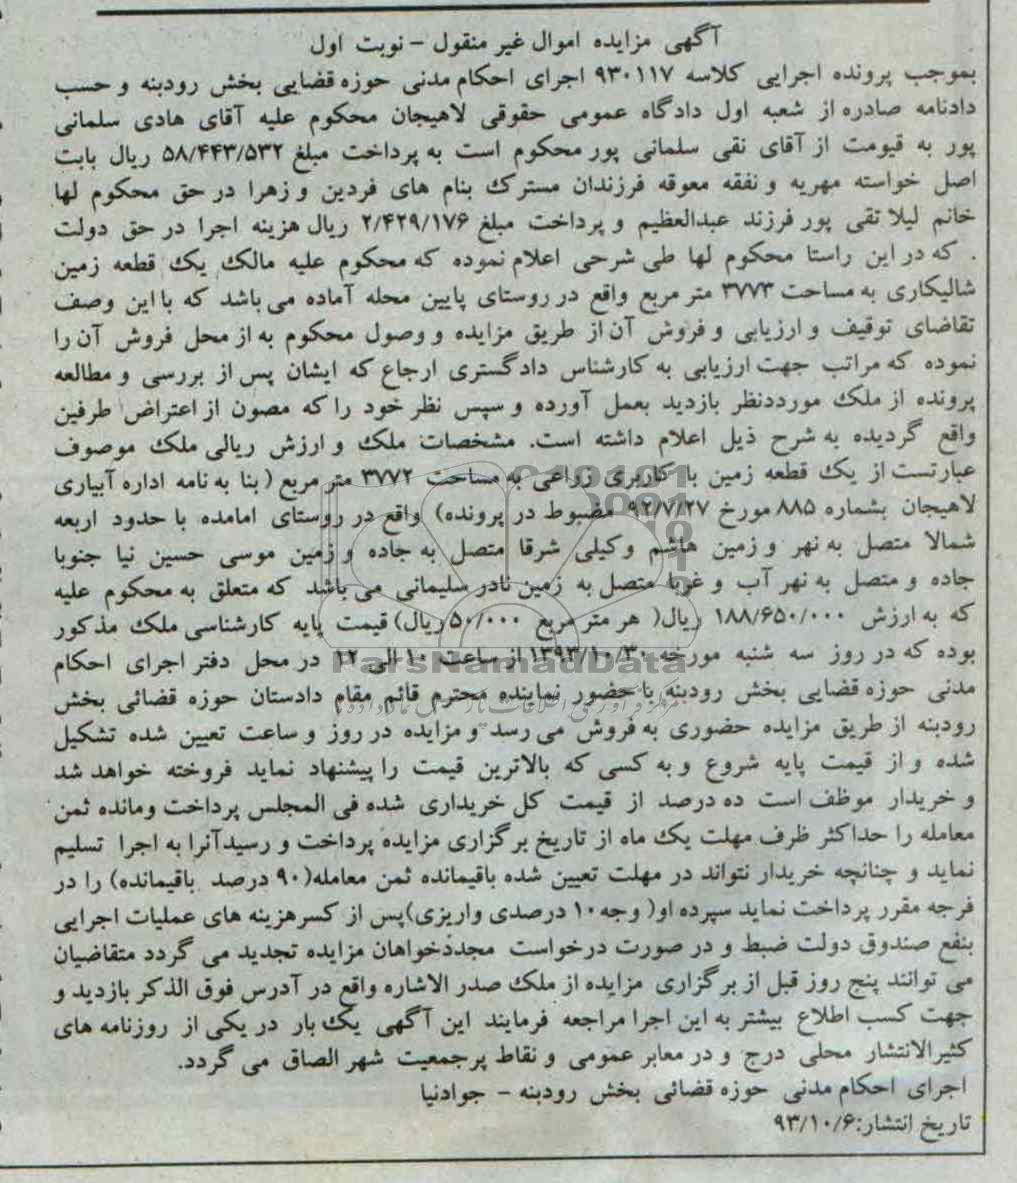 آگهی مزایده اموال غیر منقول - نوبت اول
بموجب پرونده اجرایی کلاسه ۹۳۰۱۱۷ اجرای احکام مدنی حوزه قضایی بخش رودبنه و حسب
دادنامه صادره از شعبه اول دادگاه عمومی حقوقی لاهیجان محکوم علیه آقای هادی سلمانی
پور به قیومت از آقای نقی سلمانی پور محکوم است به پرداخت مبلغ ۵۸/۴۴۳/۵۳۲ ریال بابت
اصل خواسته مهریه و نفقه معوقه فرزندان مسترک بنام های فردین و زهرا در حق محکوم لها
خانم لیلا تقی پور فرزند عبدالعظیم و پرداخت مبلغ ۲/۴۲۹/۱۷۶ ریال هزینه اجرا در حق دولت
. که در این راستا محکوم لها طی شرحی اعلام نموده که محکوم علیه مالک یک قطعه زمین
شالیکاری به مساحت ۳۷۷۳ متر مربع واقع در روستای پایین محله آماده می باشد که با این وصف
تقاضای توقیف و ارزیابی و فروش آن از طریق مزایده و وصول محکوم به از محل فروش آن را
نموده که مراتب جهت ارزیابی به کارشناس دادگستری ارجاع که ایشان پس از بررسی و مطالعه
پرونده از ملک مورددنظر بازدید بعمل آورده و سپس نظر خود را که مصون از اعتراض طرفین
واقع گردیده به شرح ذیل اعلام داشته است. مشخصات ملک و ارزش ریالی ملک موصوف
عبارتست از یک قطعه زمین با کاربری زراعی به مساحت ۳۷۷۲ متر مربع (بنا به نامه اداره آبیاری
لاهیجان بشماره ۸۸۵ مورخ ۹۲/۷/۲۷ مضبوط در پرونده) واقع در روستای امامده با حدود اربعه
شمالا متصل به نهر و زمین هاشم وکیلی شرقا متصل به جاده و زمین موسی حسین نیا جنوبا
جاده و متصل به نهر آب و غربا متصل به زمین نادر سلیمانی می باشد که متعلق به محکوم علیه
که به ارزش ۱۸۸/۶۵۰/۰۰۰ ریال( هر متر مربع ۵۰/۰۰۰ ریال) قیمت پایه کارشناسی ملک مذکور
بوده که در روز سه شنبه مورخه ۱۳۹۳/۱۰/۳۰ از ساعت ۱۰ الی ۱۲ در محل دفتر اجرای احکام
مدنی حوزه قضایی بخش رودبنه با حضور نماینده محترم قائم مقام دادستان حوزه قضائی بخش
رودبنه از طریق مزایده حضوری به فروش می رسد و مزایده در روز و ساعت تعیین شده تشکیل
شده و از قیمت پایه شروع و به کسی که بالاترین قیمت را پیشنهاد نماید فروخته خواهد شد
و خریدار موظف است ده درصد از قیمت کل خریداری شده فی المجلس پرداخت ومانده ثمن
معامله را حداکثر ظرف مهلت یک ماه از تاریخ برگزاری مزایده پرداخت و رسیدآنرا به اجرا تسلیم
نماید و چنانچه خریدار نتواند در مهلت تعیین شده باقیمانده ثمن معامله(۹۰ درصد باقیمانده) را در
فرجه مقرر پرداخت نماید سپرده او( وجه ۱۰ درصدی واریزی)پس از کسرهزینه های عملیات اجرایی
بنفع صندوق دولت ضبط و در صورت درخواست مجددخواهان مزایده تجدید می گردد متقاضیان
می توانند پنج روز قبل از برگزاری مزایده از ملک صدر الاشاره واقع در آدرس فوق الذکر بازدید و
جهت کسب اطلاع بیشتر به این اجرا مراجعه فرمایند این آگهی یک بار در یکی از روزنامه های
کثیرالانتشار محلی درج و در معابر عمومی و نقاط پرجمعیت شهر الصاق می گردد.
اجرای احکام مدنی حوزه قضائی بخش رودبنه - جوادنیا
تاریخ انتشار:۹۳/۱۰/۶
ParsNamadData